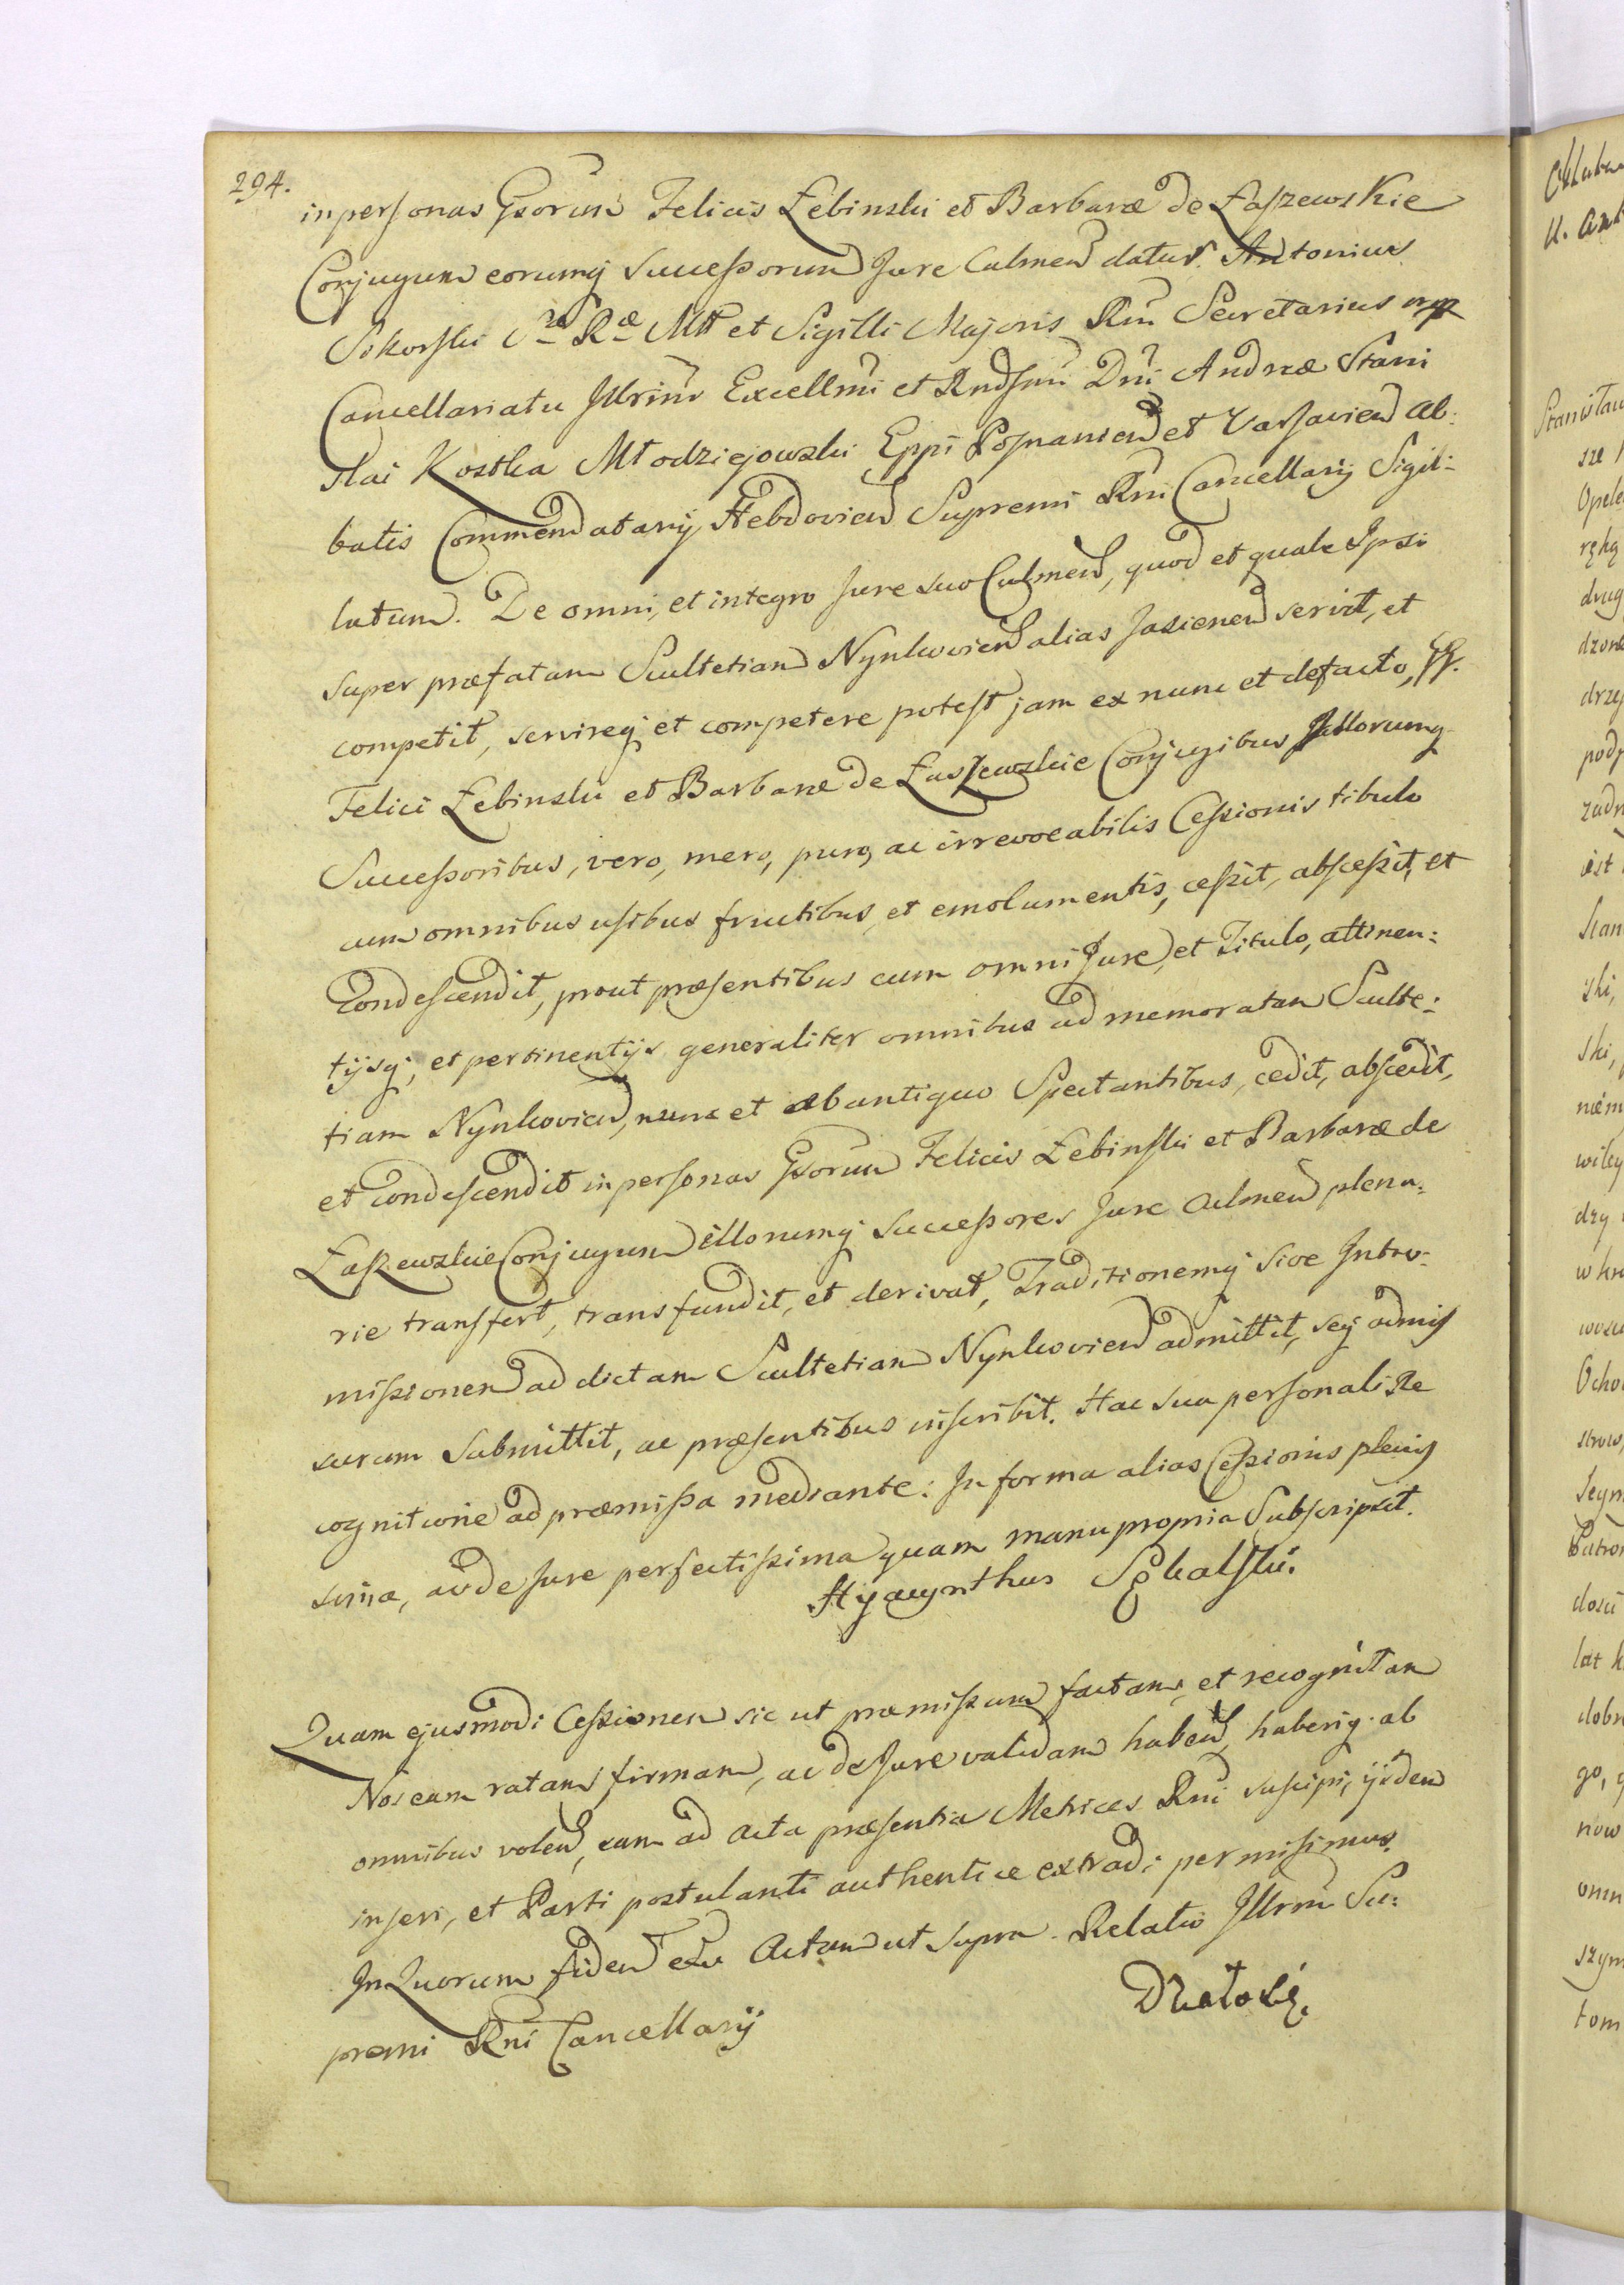 294.
in personas Gsorum Felicis Łebinski et Barbaræ de Łaszewskie
Conjugum eorumq̃ Successorum Jure Culmen datur. Antonius
Sikorski S. Ræ Mtt et Sigilli Majoris Rni Secretarius mp
Cancellariatu Jllrimi Excellmi et Rndssmi Dni Andreæ Stani
slai Kostka Młodziejowski Eppi Posnanien et Varsavien Ab:
batis Commendatarij Hebdovien Supremi Rni Cancellarij Sigil:
latum. De omni, et integro Jure suo Culmen, quod et quale Ipsi
super præfatam Scultetiam Nynkovien alias Jasienen servit, et
competit, servireq̃ et competere potest jam ex nunc et de facto, GG.
Felici Łebinski et Barbaræ de Łaszewskie Conjugibus Jllorumq̃
Successoribus, vero, mero, puro, ac irrevocabilis Cessionis titulo
cum omnibus usibus fructibus, et emolumentis, cessit, abscessit, et
Condescendit, prout præsentibus cum omni Jure, et Titulo, attinen:
tijsq̃, et pertinentijs generaliter omnibus ad memoratam Sculte:
tiam Nynkovien, nunc et ab antiquo Spectantibus, cedit, abscedit,
et condescendit in personas Gsorum Felicis Łebinski et Barbaræ de
Łaszewskie Conjugum illorumq̃ Successores Jure Culmen plena:
rie transfert, transfundit, et derivat, Traditionemq̃ sive Intro:
missionem ad dictam Scultetiam Nynkovien admittit, seq̃ admis
surum Submittit, ac præsentibus inscribit. Hac sua personali Re
cognitione ad præmissa mediante: Jn forma alias Cessionis plenis
sima, ac de Jure perfectissima quam manu propria Subscripsit.
Hyacynthus
Quam ejusmodi Cessionem sic ut præmissum factam, et recognitam
Nos eam ratam, firmam, ac de Jure validam haben, haberiq̃ ab
omnibus volen, eam ad Acta præsentia Metrices Rni suscipi, ijsdem
inseri, et Parti postulanti authentice extradi permisimus.
Jn Quorum fidem etc Actum ut supra. Relatio Jllrmi Su:
premi Rni Cancellarij